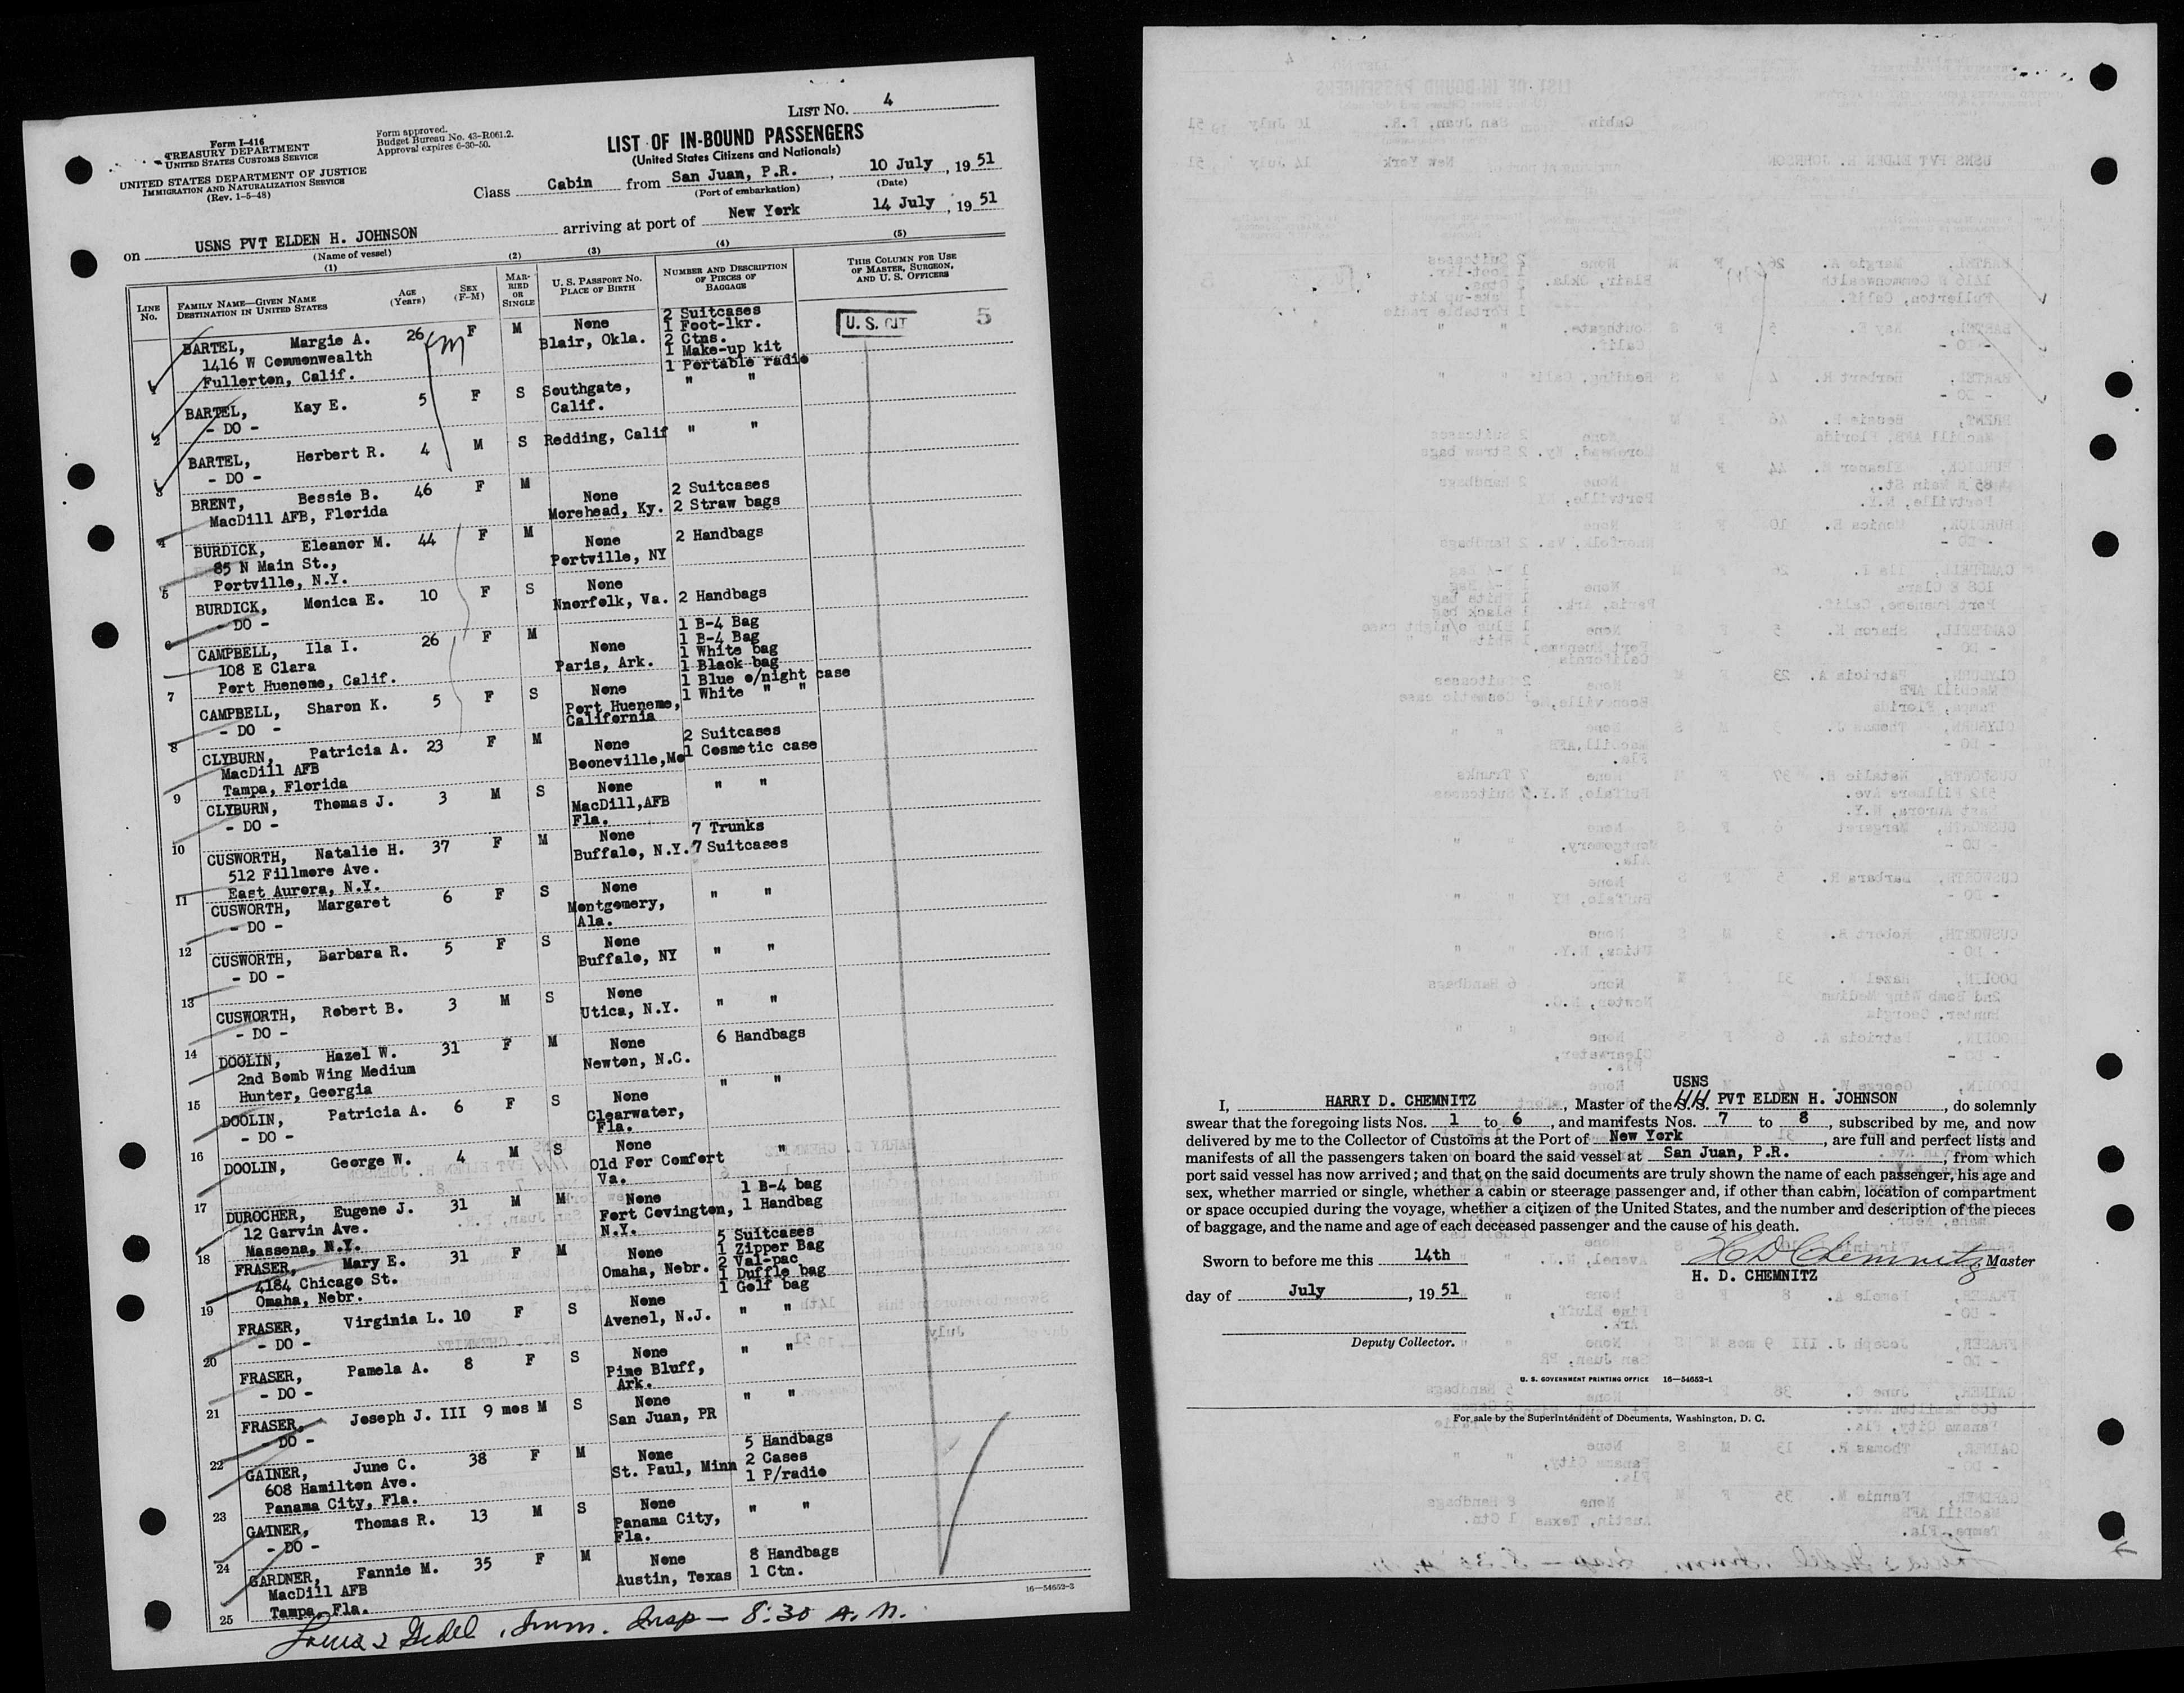 LIST NO. 4
Form I-416
TREASURY DEPARTMENT
UNITED STATES CUSTOMS SERVICE
UNITED STATES DEPARTMENT OF JUSTICE
IMMIGRATION AND NATURALIZATION SERVICE
(Rev. 1-5-48)
Form approved.
Budget Bureau No. 43-R061.2.
Approval expires 6-30-50.
LIST OF IN-BOUND PASSENGERS
(United States Citizens and Nationals)
Class Cabin from San Juan, P.R., 10 July, 1951
(Port of embarkation) (Date)
on USNS PVT ELDEN H. JOHNSON arriving at port of New York 14 July, 1951
(Name of vessel)
(1) (2) (3) (4) (5)
LINE No. FAMILY NAME—GIVEN NAME DESTINATION IN UNITED STATES AGE (Years) SEX (F-M) MARRIED OR SINGLE U. S. PASSPORT NO. PLACE OF BIRTH NUMBER AND DESCRIPTION OF PIECES OF BAGGAGE THIS COLUMN FOR USE OF MASTER, SURGEON, AND U. S. OFFICERS
2 Suitcases
BARTEL, Margie A. 26 F M None 1 Foot-lkr. U. S. CIT 5
1416 W Commonwealth Blair, Okla. 2 Ctns.
1 Make-up kit
1 Fullerton, Calif. 1 Portable radio
BARTEL, Kay E. 5 F S Southgate, " "
2 - DO - Calif.
BARTEL, Herbert R. 4 M S Redding, Calif " "
3 - DO -
BRENT, Bessie B. 46 F M None 2 Suitcases
4 MacDill AFB, Florida Morehead, Ky. 2 Straw bags
BURDICK, Eleanor M. 44 F M None 2 Handbags
85 N Main St., Portville, NY
5 Portville, N.Y.
BURDICK, Monica E. 10 F S None
6 - DO - Nnorfolk, Va. 2 Handbags
1 B-4 Bag
CAMPBELL, Ila I. 26 F M None 1 B-4 Bag
108 E Clara Paris, Ark. 1 White bag
7 Port Hueneme, Calif. 1 Black bag
CAMPBELL, Sharon K. 5 F S None 1 Blue o/night case
8 - DO - Port Hueneme, California 1 White " "
CLYBURN, Patricia A. 23 F M None 2 Suitcases
MacDill AFB Booneville, Mo 1 Cosmetic case
9 Tampa, Florida
CLYBURN, Thomas J. 3 M S None " "
10 - DO - MacDill, AFB Fla.
CUSWORTH, Natalie H. 37 F M None 7 Trunks
512 Fillmore Ave. Buffalo, N.Y. 7 Suitcases
11 East Aurora, N.Y.
CUSWORTH, Margaret 6 F S None " "
12 - DO - Montgomery, Ala.
CUSWORTH, Barbara R. 5 F S None " "
13 - DO - Buffalo, NY
CUSWORTH, Robert B. 3 M S None " "
14 - DO - Utica, N.Y.
DOOLIN, Hazel W. 31 F M None 6 Handbags
2nd Bomb Wing Medium Newton, N.C.
15 Hunter, Georgia
DOOLIN, Patricia A. 6 F S None " "
16 - DO - Clearwater, Fla.
DOOLIN, George W. 4 M S None "
17 Old For Comfort Va.
DUROCHER, Eugene J. 31 M M None 1 B-4 bag
12 Garvin Ave. Fort Covington, N.Y. 1 Handbag
18 Massena, N.Y.
FRASER, Mary E. 31 F M None 5 Suitcases
4184 Chicago St. Omaha, Nebr. 1 Zipper Bag
19 Omaha, Nebr. 2 Val-pac
1 Duffle bag
1 Golf bag
FRASER, Virginia L. 10 F S None " "
20 - DO - Avenel, N.J.
FRASER, Pamela A. 8 F S None " "
21 - DO - Pine Bluff, Ark.
FRASER, Joseph J. III 9 mos M S None " "
22 - DO - San Juan, PR
GAINER, June C. 38 F M None 5 Handbags
608 Hamilton Ave. St. Paul, Minn 2 Cases
23 Panama City, Fla. 1 P/radio
GAINER, Thomas R. 13 M S None " "
24 - DO - Panama City, Fla.
GARDNER, Fannie M. 35 F M None 8 Handbags
MacDill AFB Austin, Texas 1 Ctn.
25 Tampa, Fla.
16—54652-2
Imm. Insp — 8:30 A.M.
USNS
I, HARRY D. CHEMNITZ, Master of the S.S. PVT ELDEN H. JOHNSON, do solemnly
swear that the foregoing lists Nos. 1 to 6, and manifests Nos. 7 to 8, subscribed by me, and now
delivered by me to the Collector of Customs at the Port of New York, are full and perfect lists and
manifests of all the passengers taken on board the said vessel at San Juan, P.R., from which
port said vessel has now arrived; and that on the said documents are truly shown the name of each passenger, his age and
sex, whether married or single, whether a cabin or steerage passenger and, if other than cabin, location of compartment
or space occupied during the voyage, whether a citizen of the United States, and the number and description of the pieces
of baggage, and the name and age of each deceased passenger and the cause of his death.
Sworn to before me this 14th H D Chemnitz, Master
H. D. CHEMNITZ
day of July, 1951
Deputy Collector.
U. S. GOVERNMENT PRINTING OFFICE 16—54652-1
For sale by the Superintendent of Documents, Washington, D. C.